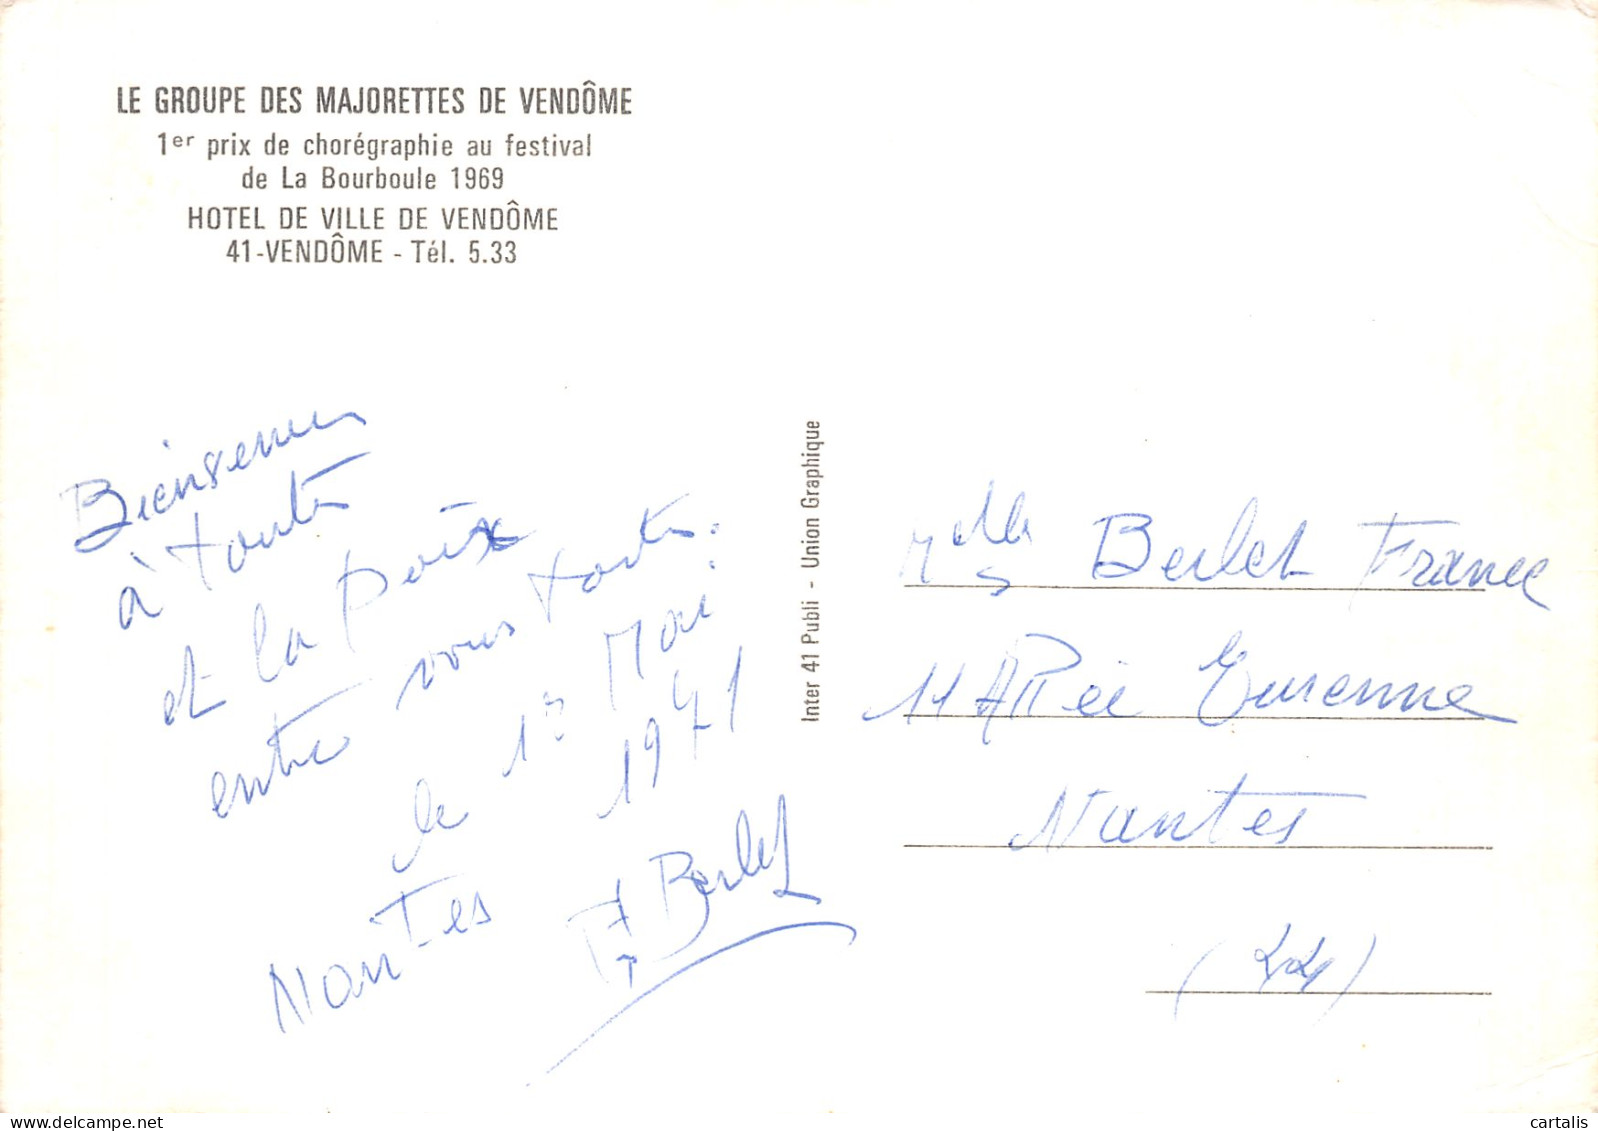 LE GROUPE DES MAJORETTES DE VENDÔME
1er prix de chorégraphie au festival
de La Bourboule 1969
HOTEL DE VILLE DE VENDÔME
41-VENDÔME - Tél. 5.33
à toutes
et la paix
entre vous toutes.
le 1er Mai
1971
Nantes
F Berlet
Inter 41 Publi - Union Graphique
Melles Berlet France
11 Allée Turenne
Nantes
(44)
cartalis